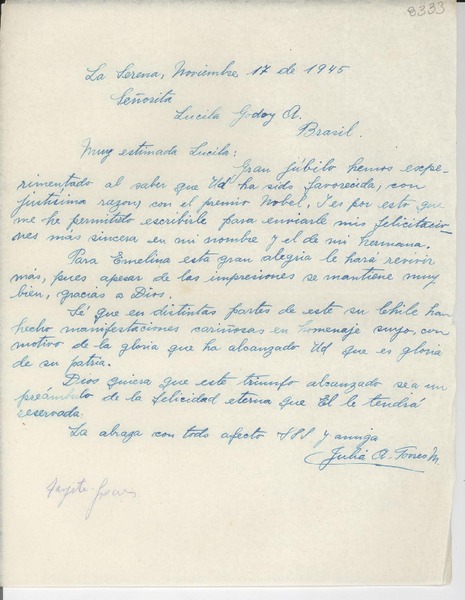 8333
La Serena, Noviembre 17 de 1945
Señorita
Lucila Godoy A.
Brasil.
Muy estimada Lucila:
Gran júbilo hemos expe-
rimentado al saber que Ud ha sido favorecida, con
justísima razon, con el premio Nobel. I es por esto que
me he permitido escribirle para enviarle mis felicitacio-
nes más sincera en mi nombre y el de mi hermana.
Para Emelina esta gran alegria le hará revivir
más, pues apesar de las impresiones se mantiene muy
bien, gracias a Dios.
Sé que en distintas partes de este su Chile han
hecho manifestaciones cariñosas en homenaje suyo, con
motivo de la gloria que ha alcanzado Ud que es gloria
de su patria.
Dios quiera que este triunfo alcanzado sea un
preámbulo de la felicidad eterna que El le tendrá
reservada.
La abraza con todo afecto SSS y amiga
Julia A. Torres M.